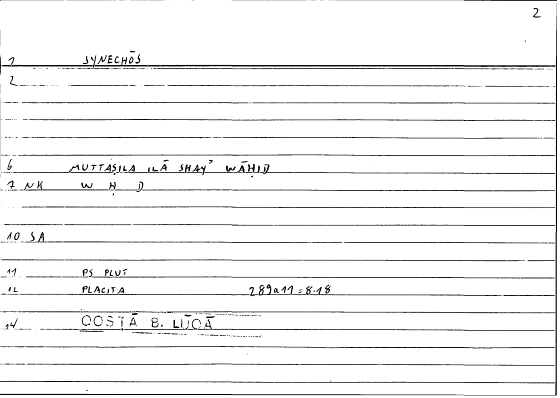 2
1 SYNECHŌS
2
6 MUTTAṢILA ILĀ SHAYʾ WĀḤID
7 NK W Ḥ D
10 SA
11 PS PLUT
12 PLACITA 289a11 = 8.18
14 QOSṬĀ B. LŪQĀ